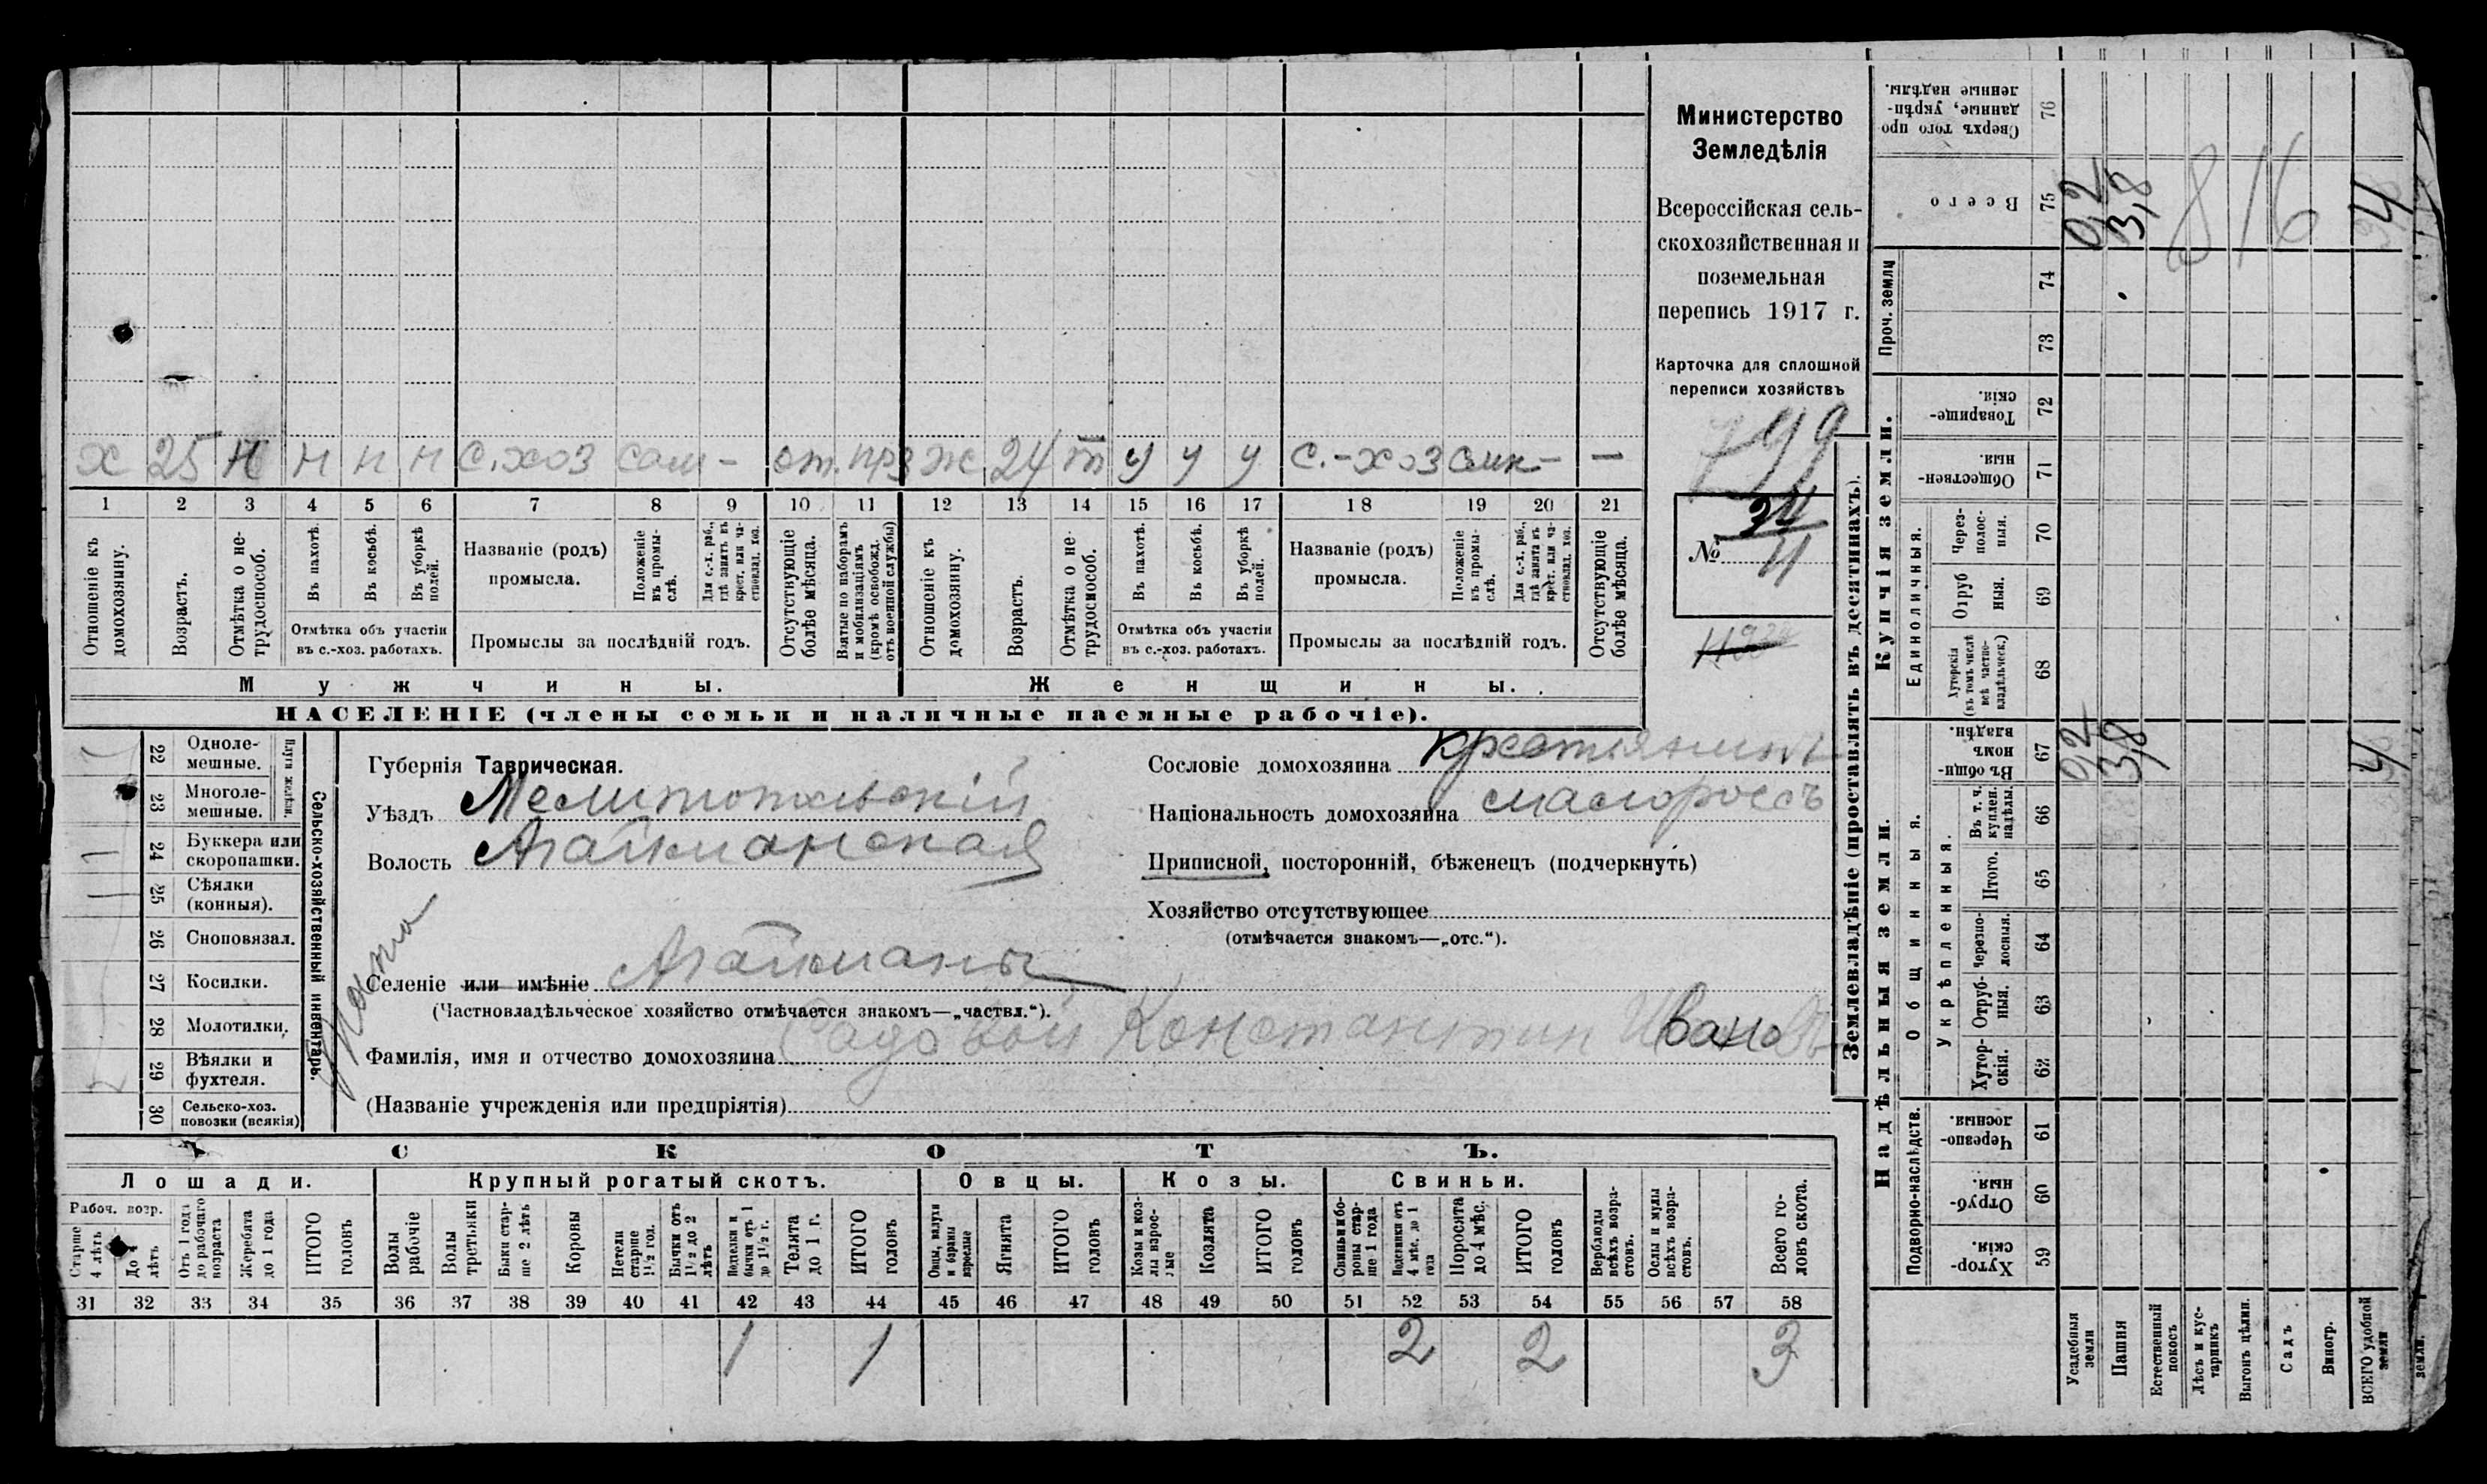 х 25 н н н н с.хоз сам - от. прз ж 24 т у у у с.-хоз - -
1 2 3 4 5 6 7 8 9 10 11 12 13 14 15 16 17 18 19 20 21
Отношеніе къ домохозяину.
Возрастъ.
Отмѣтка о нетрудоспособ.
Въ пахотѣ.
Въ косьбѣ.
Въ уборкѣ полей.
Отмѣтка объ участіи
въ с.-хоз. работахъ.
Названіе (родъ)
промысла.
Положеніе въ промыслѣ.
Для с.-х. раб., гдѣ занятъ въ крест. или частновлад. хоз.
Промыслы за послѣдній годъ.
Отсутствующіе болѣе мѣсяца.
Взятые по наборамъ и мобилизаціямъ (кромѣ освобожд. отъ военной службы)
Отношеніе къ домохозяину.
Возрастъ.
Отмѣтка о нетрудоспособ.
Въ пахотѣ.
Въ косьбѣ.
Въ уборкѣ полей.
Отмѣтка объ участіи
въ с.-хоз. работахъ.
Названіе (родъ)
промысла.
Положеніе въ промыслѣ.
Для с.-х. раб., гдѣ занята въ крест. или частновлад. хоз.
Промыслы за послѣдній годъ.
Отсутствующіе болѣе мѣсяца.
Мужчины.
Женщины.
НАСЕЛЕНІЕ (члены семьи и наличные наемные рабочіе).
Министерство
Земледѣлія
Всероссійская сель-
скохозяйственная и
поземельная
перепись 1917 г.
Карточка для сплошной
переписи хозяйствъ
799
№
11
22 Одноле-
мешные.
23 Многоле-
мешные.
Плуги желѣзн.
24 Буккера или
скоропашки.
25 Сѣялки
(конныя).
26 Сноповязал.
27 Косилки.
28 Молотилки.
29 Вѣялки и
фухтеля.
30 Сельско-хоз.
повозки (всякія)
Сельско-хозяйственный инвентарь.
Губернія Таврическая.
Уѣздъ Мелитопольскій
Волость Агайманская
Селеніе или имѣніе Агайманы
(Частновладѣльческое хозяйство отмѣчается знакомъ—„частвл.“).
Фамилія, имя и отчество домохозяина Садовой Константин Иванов
(Названіе учрежденія или предпріятія)
Сословіе домохозяина крестьянинъ
Національность домохозяина малороссъ
Приписной, посторонній, бѣженецъ (подчеркнуть)
Хозяйство отсутствующее
(отмѣчается знакомъ—„отс.“).
СКОТЪ.
Лошади.
Крупный рогатый скотъ.
Овцы.
Козы.
Свиньи.
Рабоч. возр.
Старше 4 лѣтъ
До 4 лѣтъ
Отъ 1 года до рабочаго возраста
Жеребята до 1 года
ИТОГО головъ
Волы рабочіе
Волы третьяки
Быки старше 2 лѣтъ
Коровы
Нетели старше 1½ год.
Бычки отъ 1½ до 2 лѣтъ
Подтелки и бычки отъ 1 до 1½ г.
Телята до 1 г.
ИТОГО головъ
Овцы, валухи и бараны взрослые
Ягнята
ИТОГО головъ
Козы и козлы взрослые
Козлята
ИТОГО головъ
Свиньи и боровы старше 1 года
Подсвинки отъ 4 мѣс. до 1 года
Поросята до 4 мѣс.
ИТОГО головъ
Верблюды всѣхъ возрастовъ.
Ослы и мулы всѣхъ возрастовъ.
Всего головъ скота.
31 32 33 34 35 36 37 38 39 40 41 42 43 44 45 46 47 48 49 50 51 52 53 54 55 56 57 58
1 1 2 2 3
Землевладѣніе (проставлять въ десятинахъ).
Надѣльныя земли.
Купчія земли.
Проч. земли
Подворно-наслѣдств.
Общинныя.
Укрѣпленныя.
Единоличныя.
Хутор-
скія. 59
Отруб-
ныя. 60
Черезпо-
лосныя. 61
Хутор-
скія. 62
Отруб-
ныя. 63
Черезпо-
лосныя. 64
Итого. 65
Въ т. ч. куплен. надѣлы. 66
Въ общин-
номъ владѣн. 67
Хуторскія (въ томъ числѣ всѣ частно-владѣльческ.) 68
Отруб
ныя. 69
Через-
полос-
ныя. 70
Обществен-
ныя. 71
Товарище-
скія. 72
73
74
Всего 75
Сверхъ того про
данные, укрѣп-
ленные надѣлы. 76
0,2 3,8 816 4
0,2 3,8 4
Усадебныя земли
Пашня
Естественный покосъ
Лѣсъ и кус-
тарникъ
Выгонъ цѣлин.
Садъ
Виногр.
ВСЕГО удобной земли
земли.